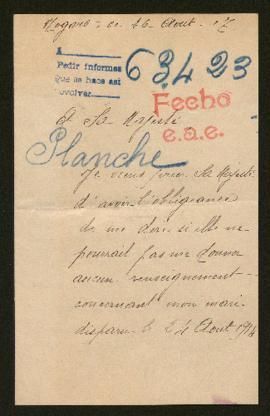 ce 16 Août 17
A
Pedir informes
que se hace así
devolver
63423
Fecho
e.a.e.
A Sa Majesté
Planche
Je viens prier Sa Majesté
d'avoir l'obligeance
de me dire si elle ne
pourrait pas me donner
aucun renseignement
concernant mon mari
disparu le 24 Août 1914